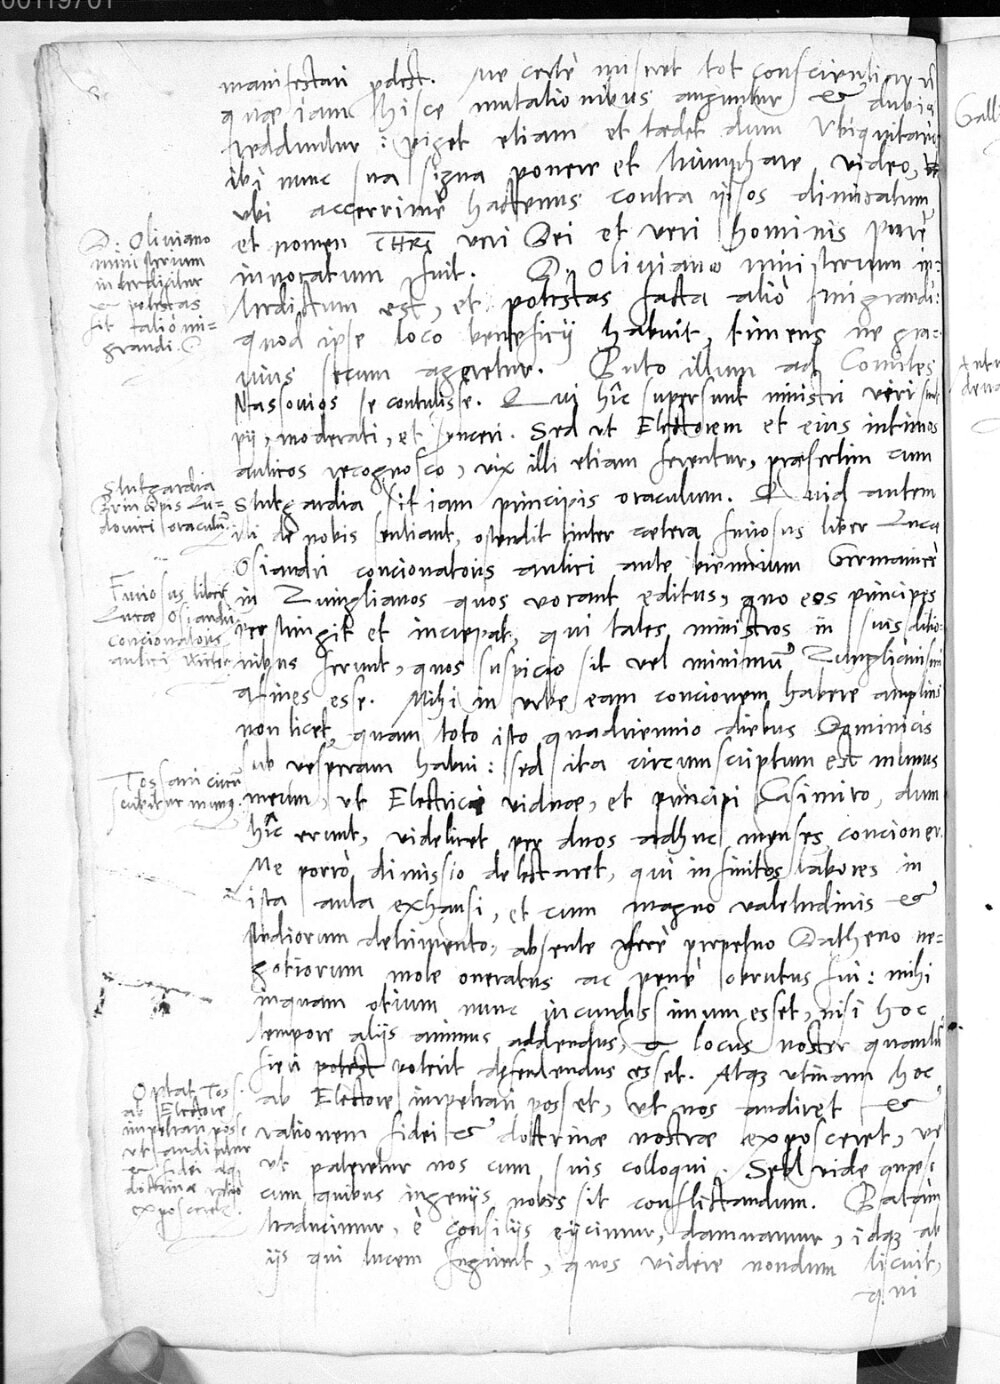 00119701
manifestari potest. Me certè miseret tot conscientiarum
quae iam hisce mutationibus anguntur & dubiae
redduntur: piget etiam et taedet dum Ubiquitarios
ibi nunc sua signa ponere et triumphare video,
ubi accerrimè hactenus contra ipsos dimicatum
et nomen veri Dei et veri hominis purè
invocatum fuit. D. Oliviano ministerium in-
terdictum est, et potestas facta aliò migrandi:
quod ipse loco beneficij habuit, timens ne gra-
vius secum ageretur. Puto illum ad Comites
Nassovios se contulisse. Qui hîc supersunt ministri veri sunt
pij, moderati, et synceri. Sed ut Electorem et eius intimos
aulicos recognosco, vix illi etiam ferentur, praesertim cum
Stutgardia sit iam principis oraculum. Quid autem
illi de nobis sentiant, ostendit inter caetera furiosus liber Lucae
Osiandri concionatoris aulici ante biennium Germanicè
in Zuinglianos quos vocant editus, quo eos principes
perstringit et increpat, qui tales ministros in suis ditio-
nibus ferunt, quos suspicio sit vel minimum Zuinglianismi
afines esse. Mihi in urbe eam concionem habere amplius
non licet, quam toto isto quadriennio diebus Dominicis
sub vesperam habui: sed ita circumscriptum est munus
meum, ut Electrici viduae, et principi Casimiro, dum
hîc erunt, videlicet per duos adhuc menses, concioner.
Me porrò dimissio delectaret, qui infinitos labores in
ista aula exhausi, et cum magno valetudinis &
studiorum detrimento, absente ferè perpetuo Datheno ne-
gotiorum mole oneratus ac penè obrutus fui: mihi
inquam otium nunc iucundissimum esset, nisi hoc
tempore alijs animus addendus, & locus noster quantum
fieri potest poterit defendendus esset. Atque utinam hoc
ab Electore impetrari posset, ut nos audiret &
rationem fidei & doctrinae nostrae exposceret, vel
ut pateretur nos cum suis colloqui. Sed vide quaeso
cum quibus ingenijs nobis sit conflictandum. Palàm
traducimur, è consilijs eijcimur, damnamur, idque ab
ijs qui lucem fugiunt, quos videre nondum licuit,
qui
D. Oliviano
ministerium
interdicitur
& potestas
fit aliò mi-
grandi.
Stutgardia
Principis Lu-
dovici oraculum
Furiosus liber
Lucae Osiandri
concionatoris
aulici
Tossani circum-
scribitur munus
Optat Toss.
ab Electore
impetrari posse
ut audiatur
& fidei atque
doctrinae ratio
exposcere.
Galli